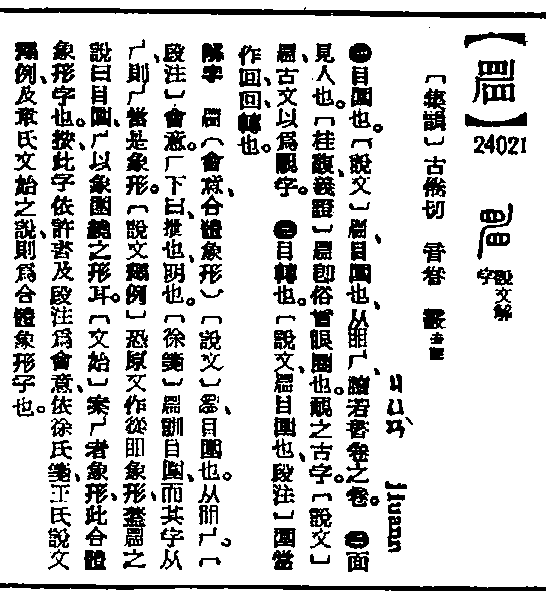 【】
24021
說文解字
〔集韻〕古倦切 音眷 霰去聲
ㄐㄩㄢˋ jiuann
㊀目圍也。〔說文〕、目圍也、从䀠𠂆、讀若書卷之卷。㊁面
見人也。〔桂馥義證〕卽俗言眼圈也。靦之古字。〔說文〕
古文以爲靦字。㊂目轉也。〔說文、目圍也、段注〕圍當
作回回轉也。
解字 〔會意、合體象形〕〔說文〕、目圍也。从䀠𠂆。〔
段注〕會意。𠂆下曰、抴也、明也。〔徐箋〕訓目圍、而其字从
𠂆、則𠂆當是象形。〔說文釋例〕恐原文作從䀠象形、蓋之
說曰目圍、𠂆以象圍繞之形耳。〔文始〕案𠂆者象形、此合體
象形字也。按此字依許書及段注爲會意、依徐氏箋、王氏說文
釋例、及章氏文始之說、則爲合體象形字也。